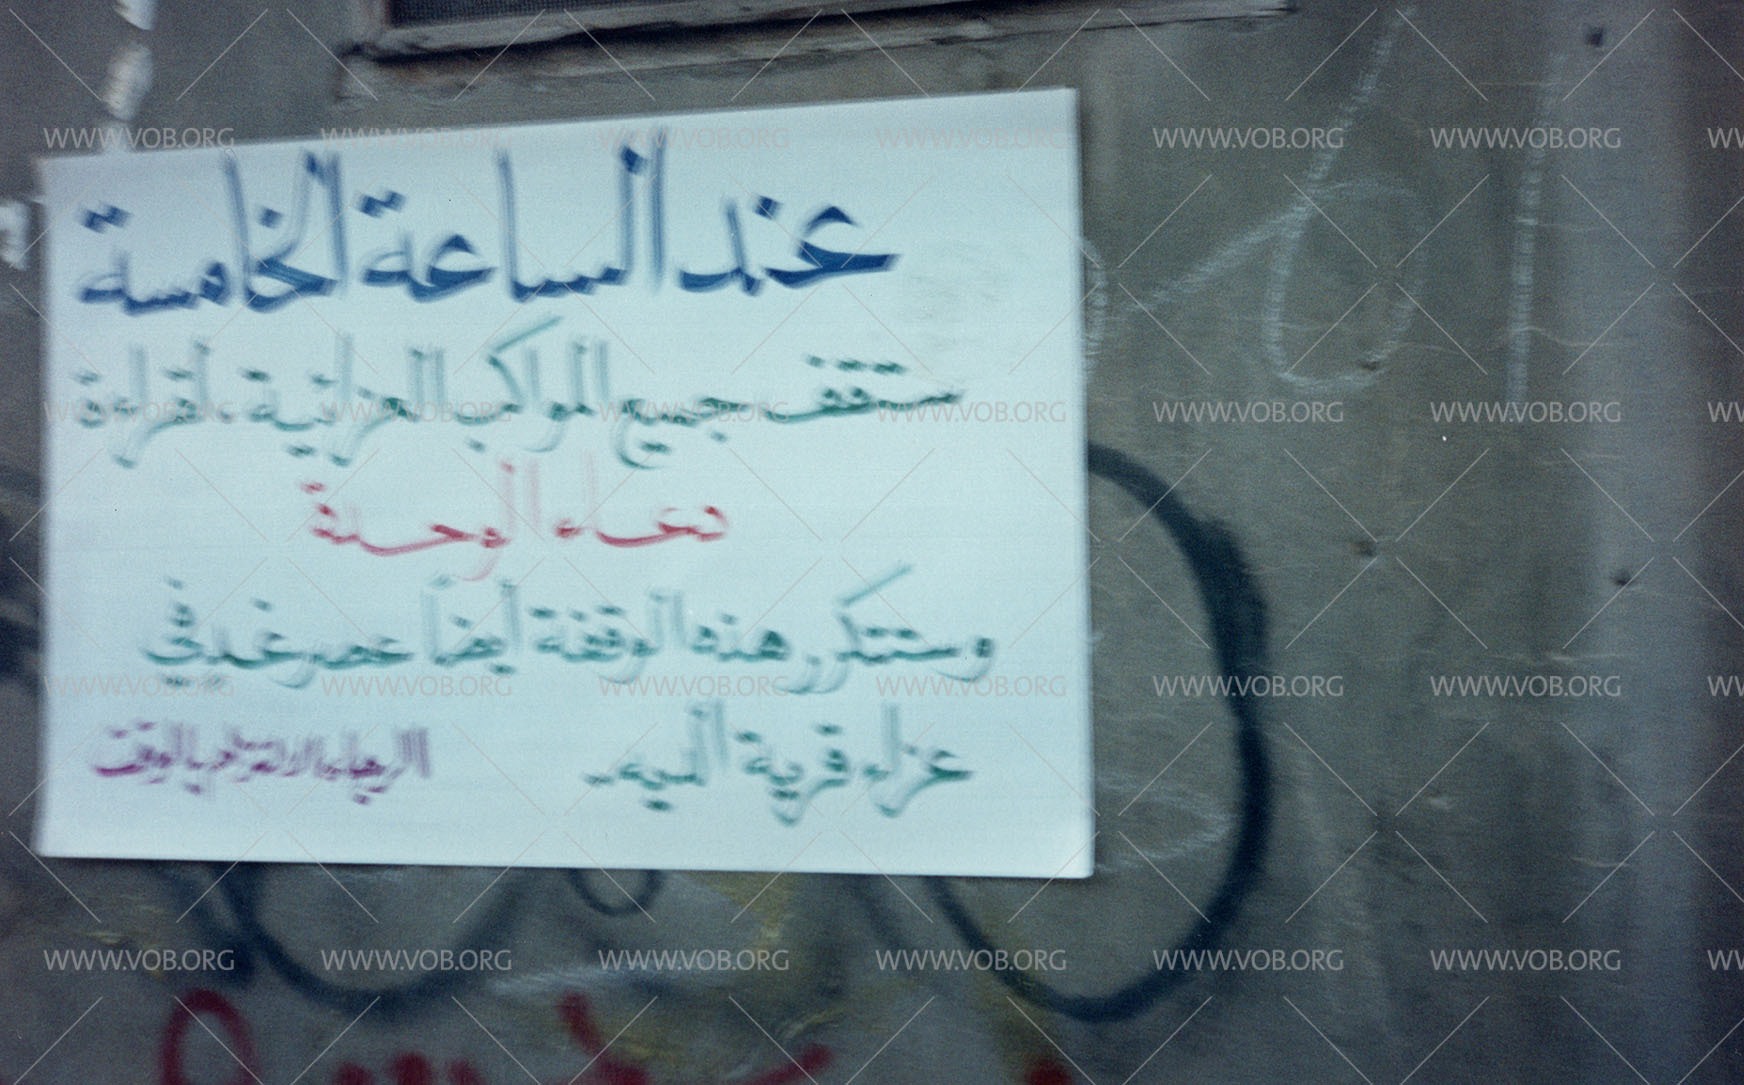 عند الساعة الخامسة
ستقف جميع المواكب العزائية لقراءة
دعاء الوحدة
وستتكرر هذه الوقفة أيضاً عصر غد في
عزاء قرية الديه..
الرجاء الالتزام بالوقت
WWW.VOB.ORG